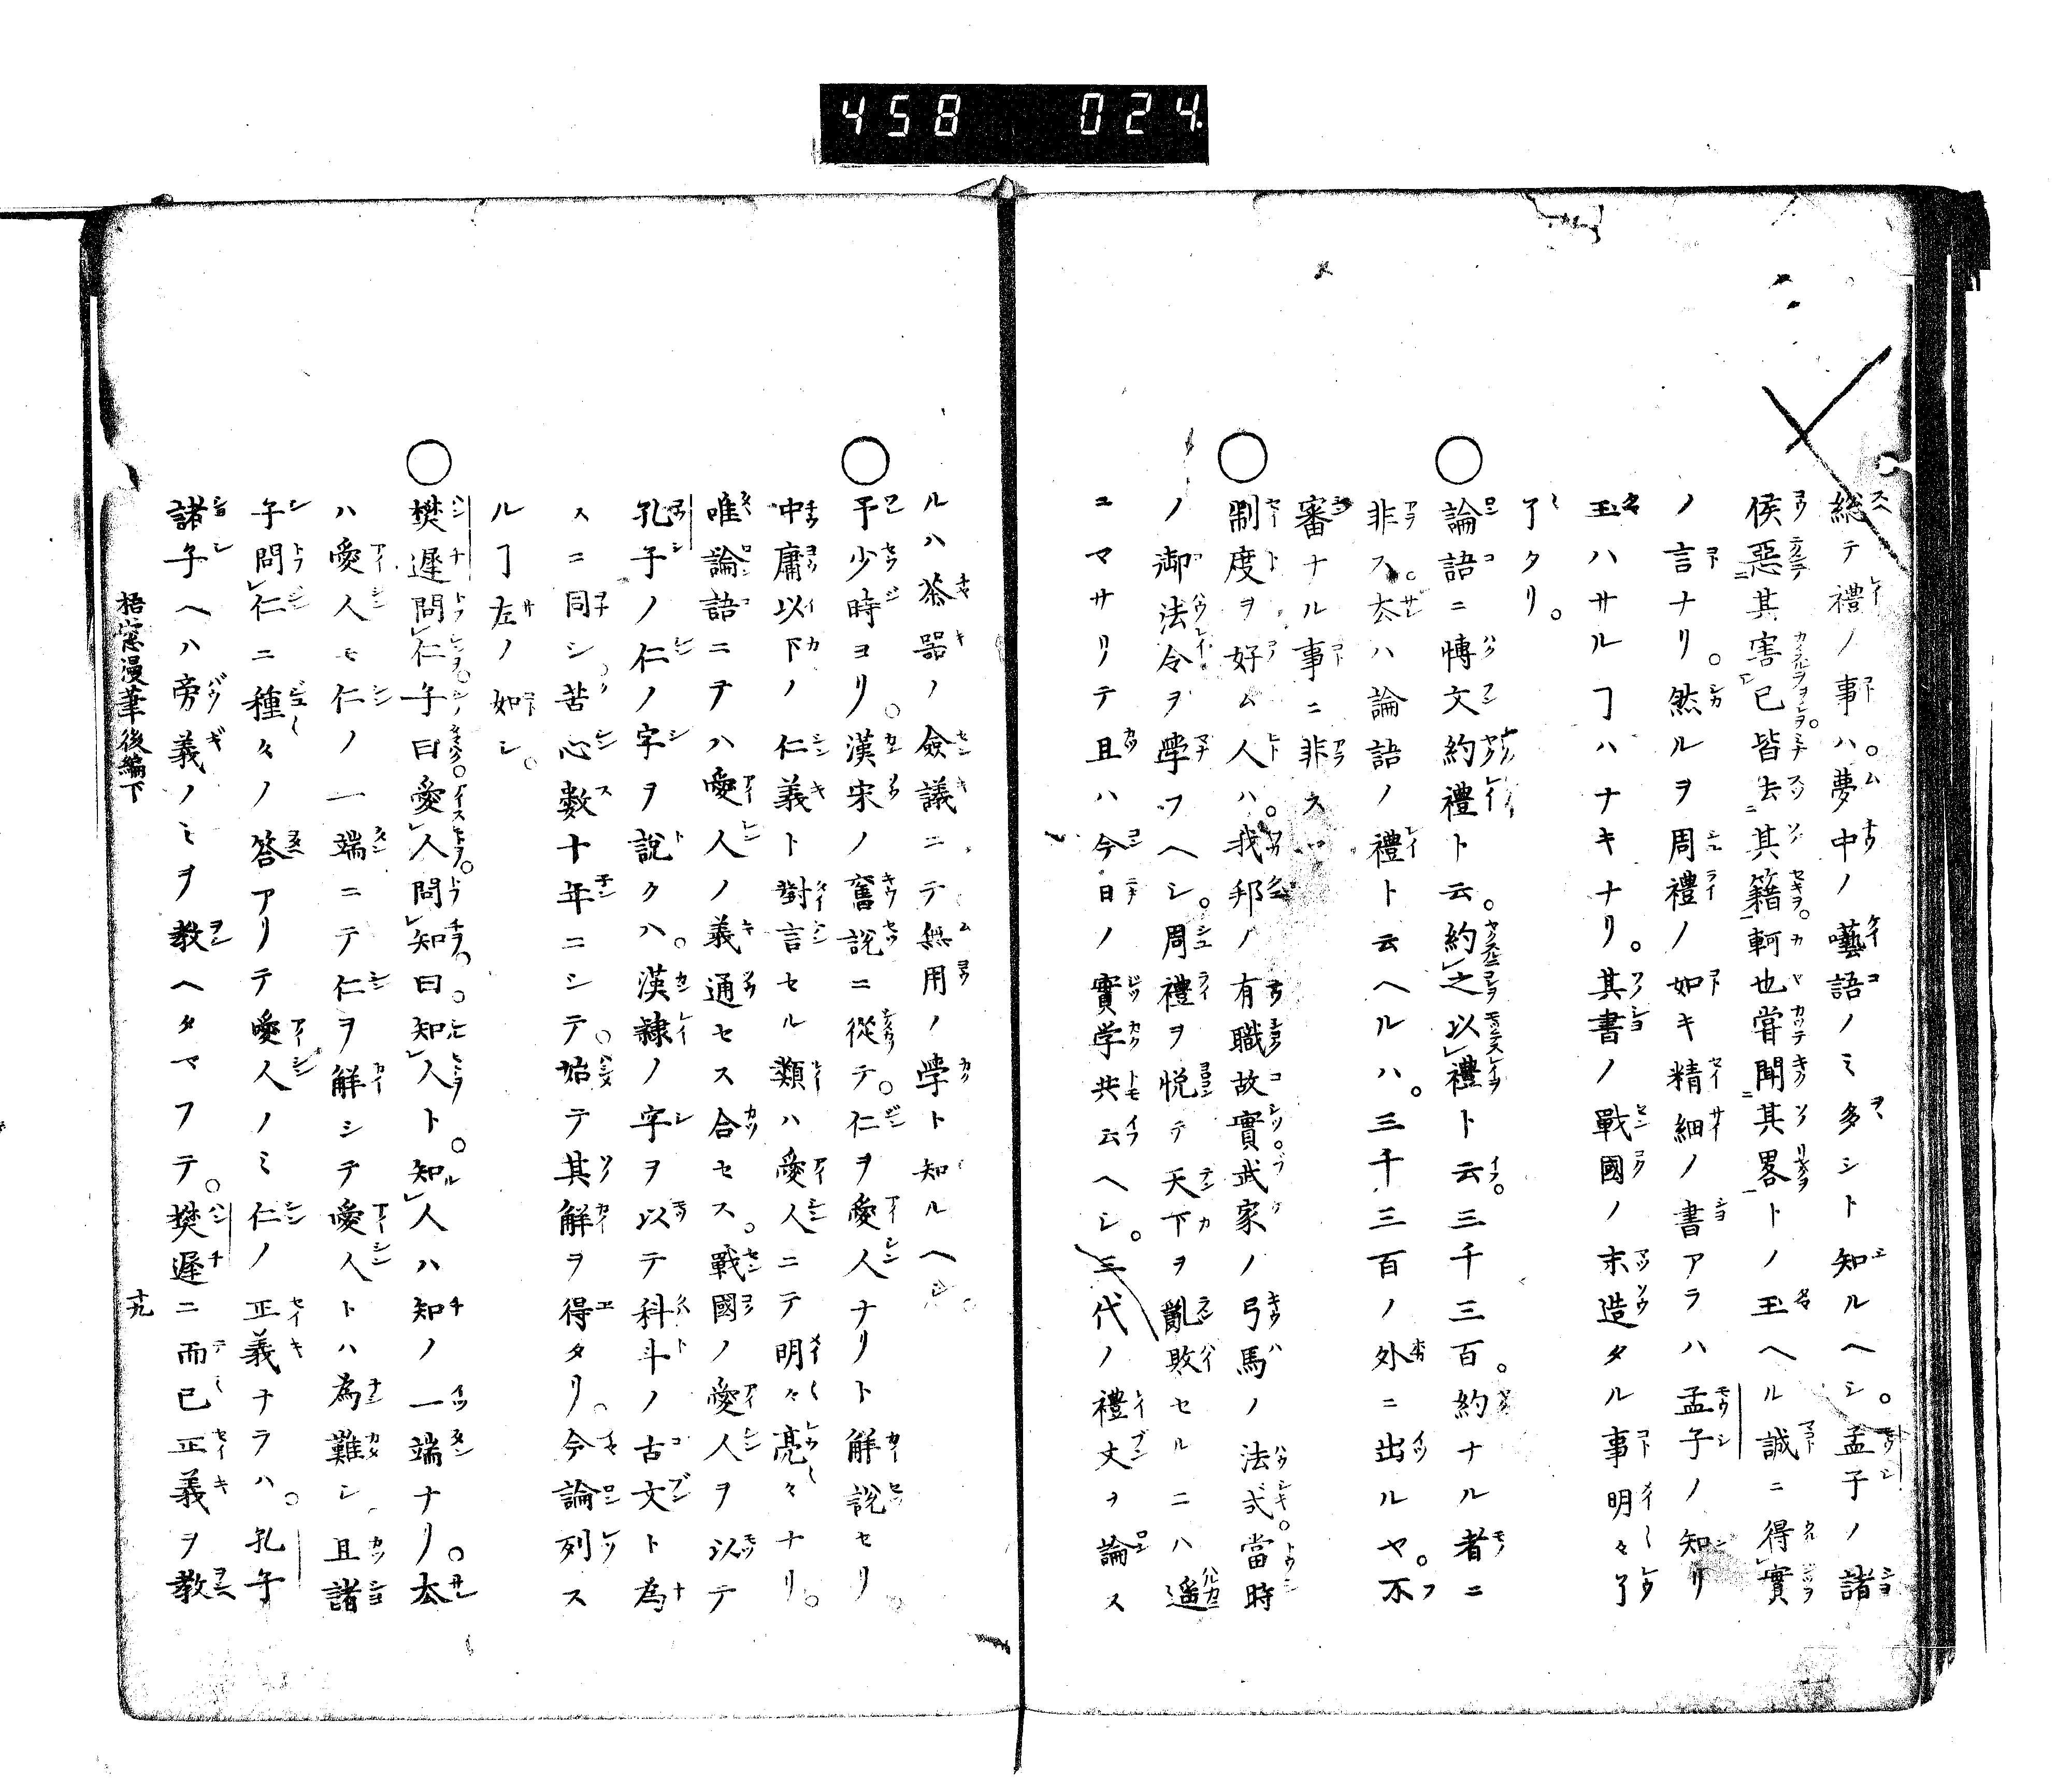 458 024
総テ禮ノ事ハ。夢中ノ囈語ノミ多シト知ルヘシ。孟子ノ諸
侯惡其害已皆去其籍軻也甞聞其畧トノ玉ヘル誠ニ得實
ノ言ナリ。然ルヲ周禮ノ如キ精細ノ書アラハ孟子ノ知リ
玉ハサルヿハナキナリ。其書ノ戰國ノ末造タル事明々了
了タリ。
○論語ニ博文約禮ト云。約之以禮ト云。三千三百。約ナル者ニ
非ス。夲ハ論語ノ禮ト云ヘルハ。三千三百ノ外ニ出ルヤ。不
審ナル事ニ非スヤ
○制度ヲ好ム人ハ。我邦ノ有職故實武家ノ弓馬ノ法式。當時
ノ御法令ヲ學フヘシ。周禮ヲ悦テ天下ヲ亂敗セルニハ遥
ニマサリテ且ハ今日ノ實学共云ヘシ。三代ノ禮文ヲ論ス
ルハ茶器ノ僉議ニテ無用ノ學ト知ルヘシ。
○予少時ヨリ。漢宋ノ舊説ニ從テ。仁ヲ愛人ナリト解説セリ。
中庸以下ノ仁義ト對言セル類ハ愛人ニテ明々亮々ナリ。
唯論語ニテハ愛人ノ義通セス合セス。戰國ノ愛人ヲ以テ
孔子ノ仁ノ字ヲ說クハ。漢隸ノ字ヲ以テ科斗ノ古文ト為
スニ同シ。苦心數十年ニシテ。始テ其解ヲ得タリ。今論列ス
ルヿ左ノ如シ。
○樊遲問仁子曰愛人問知曰知人ト。知人ハ知ノ一端ナリ。夲
ハ愛人モ仁ノ一端ニテ仁ヲ解シテ愛人トハ為難シ且諸
子問仁ニ種々ノ答アリテ愛人ノミ仁ノ正義ナラハ。孔子
諸子ヘハ旁義ノミヲ教ヘタマフテ。樊遲ニ而已正義ヲ教
梧窓漫筆後編下 十九